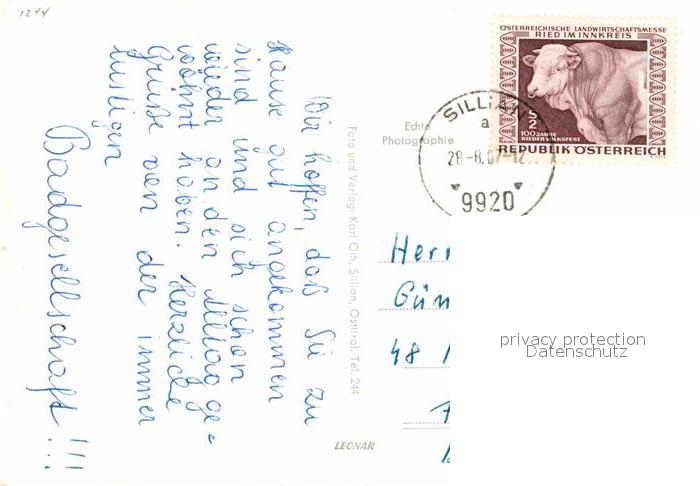 1244
Wir hoffen, daß Sie zu
Hause gut angekommen
sind und sich schon
wieder an den Alltag ge=
wöhnt haben. Herzliche
Grüße von der immer
lustigen
Badgesellschaft!!!
Foto und Verlag: Karl Oth, Sillian, Osttirol, Tel. 244
LEONAR
Echte
Photographie
ÖSTERREICHISCHE LANDWIRTSCHAFTSMESSE
RIED IM INNKREIS
S 2
100 JAHRE
RIEDER VOLKSFEST
REPUBLIK ÖSTERREICH
SILLIAN
a
28.-8.67-12
9920
Herr
Gün
48
privacy protection
Datenschutz